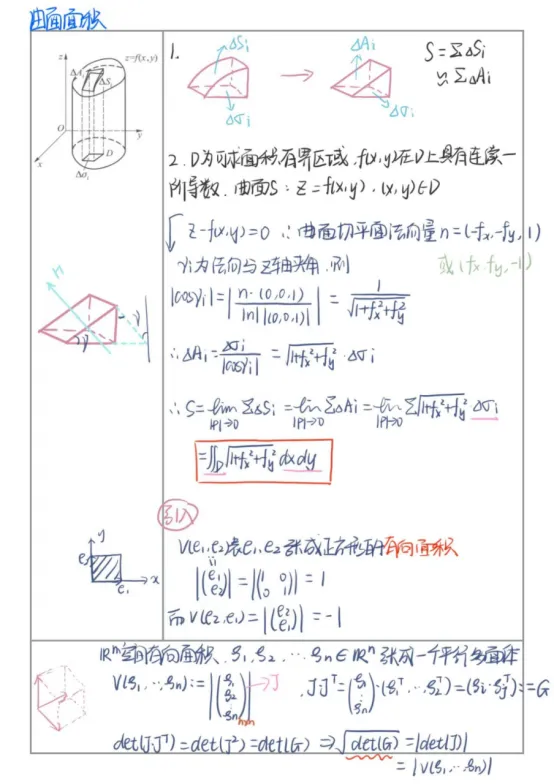 曲面面积
z
z=f(x,y)
ΔA
ΔS_i
O
y
x
Δσ_i
1.
ΔS_i
ΔA_i
Δσ_i
Δσ_i
S=ΣΔS_i
≈ΣΔA_i
2. D为可求面积有界区域, f(x,y)在D上具有连续一
阶导数. 曲面S: Z=f(x,y), (x,y)∈D
Z-f(x,y)=0 ∴曲面切平面法向量n=(-fx,-fy,1)
或(fx,fy,-1)
γi为法向与Z轴夹角, 则
|cosγi|=|n·(0,0,1)/|n||(0,0,1)||=1/√(1+fx²+fy²)
n
γ
γ
∴ΔAi=Δσi/|cosγi|=√(1+fx²+fy²)·Δσi
∴S=lim_{|P|→0}ΣΔSi=lim_{|P|→0}ΣΔAi=lim_{|P|→0}Σ√(1+fx²+fy²)Δσi
=∬_D√(1+fx²+fy²)dxdy
引入
V(e1,e2)表e1,e2张成正方形的有向面积
y
e2
e1
x
|(e1 e2)|=|(1 0 0 1)|=1
而V(e2,e1)=|(e2 e1)|=-1
ℝⁿ空间有向面积, ξ1,ξ2,…ξn∈ℝⁿ张成一个平行多面体
V(ξ1,…,ξn):=|(ξ1 ξ2 ⋮ ξn)_{n×n}|→J, JJᵀ=(ξ1 ⋮ ξn)·(ξ1ᵀ…ξ2ᵀ)=(ξi·ξjᵀ):=G
det(J·Jᵀ)=det(J²)=det(G) ⇒√det(G)=|det(J)|
=|V(ξ1,…ξn)|